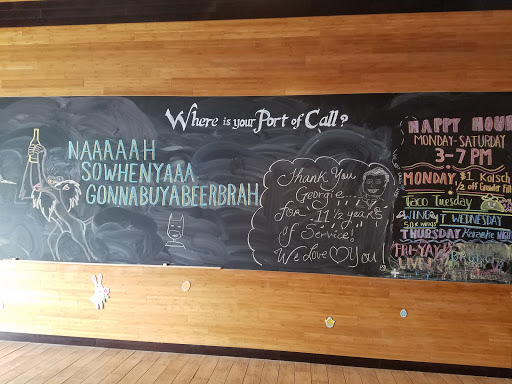 Where is your Port of Call?
NAAAAAH
SOWHENYAAA
GONNABUYABEERBRAH
Thank You
Georgie
for 11 1/2 years
of Service!
We Love You
HAPPY HOUR
MONDAY-SATURDAY
3-7 PM
MONDAY $1 Kolsch
1/2 off Growler Fill
Taco Tuesday
WING IT WEDNESDAY
50¢ WINGS
THURSDAY Karaoke
FRI-YAY